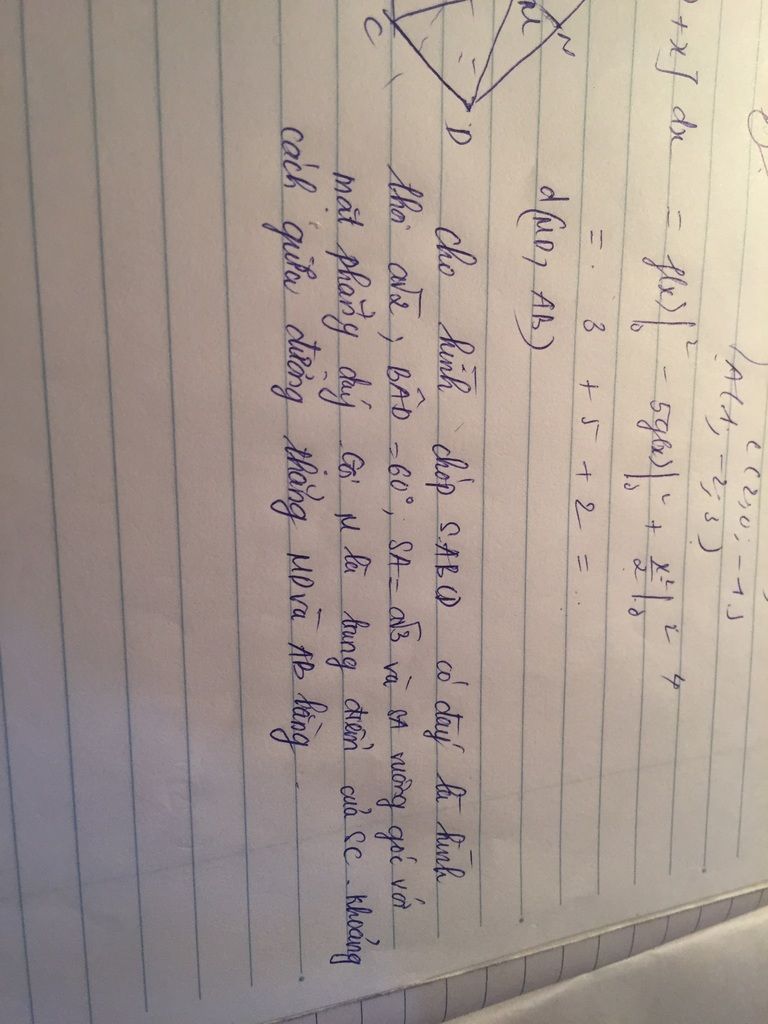 C
M
N
D
+ x] dx = f(x)|₀² - 5g(x)|₀² + x²/2|₀² = 4
A(1, -2; 3)
= 3 + 5 + 2 = ..
d(MD, AB)
cho hình chóp S.ABCD có đáy là hình
thoi a√2, BAD = 60°, SA = a√3 và SA vuông góc với
mặt phẳng đáy. Gọi M là trung điểm của SC. Khoảng
cách giữa đường thẳng MD và AB bằng.